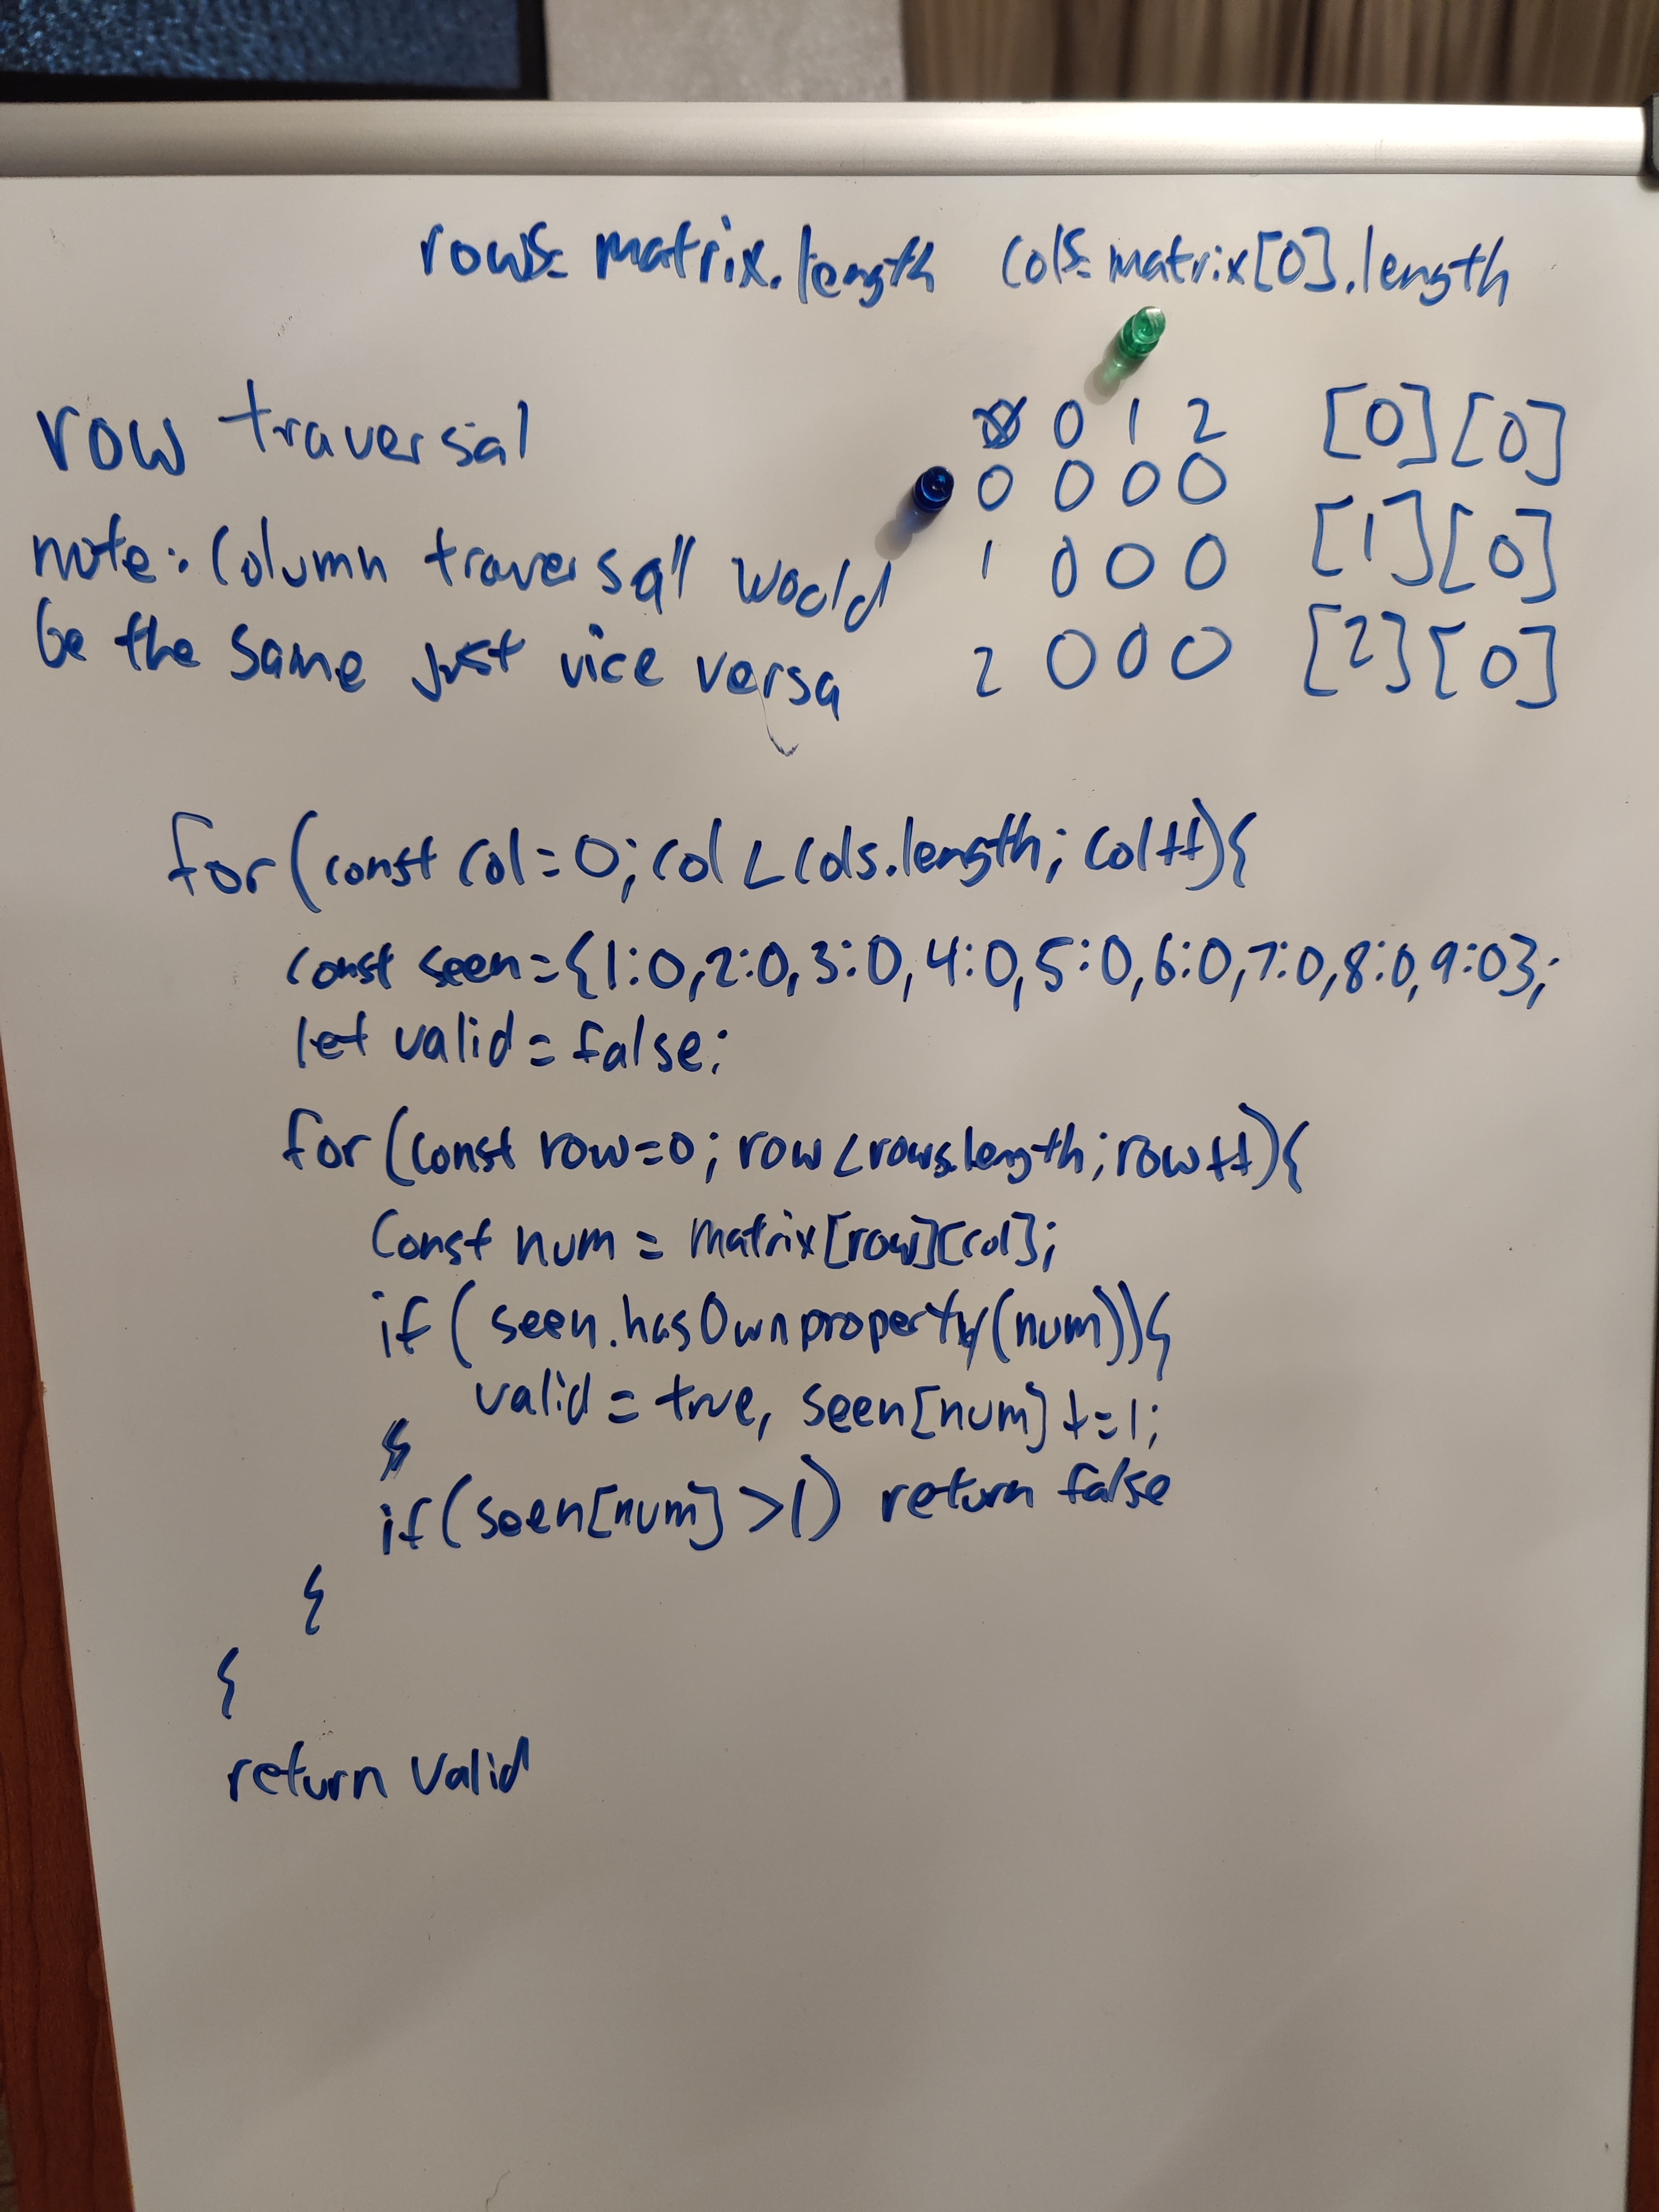 rows= matrix.length cols= matrix[0].length
row traversal
note: Column traversal would
be the same just vice versa
0 1 2 [0][0]
0 0 0 0
1 0 0 0 [1][0]
2 0 0 0 [2][0]
for(const col=0; col<cols.length; col++){
const seen={1:0,2:0,3:0,4:0,5:0,6:0,7:0,8:0,9:0};
let valid=false;
for(const row=0; row<rows.length; row++){
Const num = matrix[row][col];
if( seen.hasOwnproperty(num)){
valid=true, seen[num]+=1;
}
if(seen[num]>1) return false
{
{
return valid